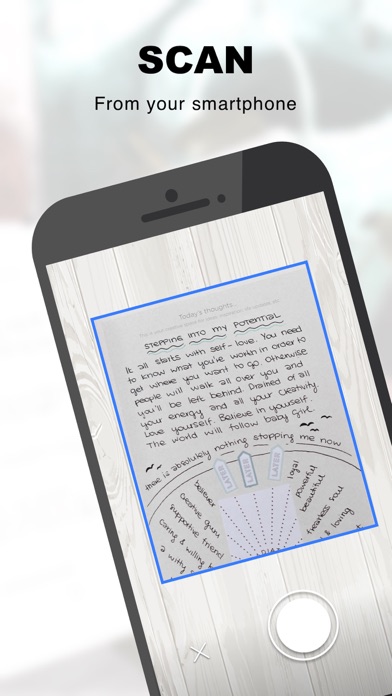 SCAN
From your smartphone
Today's thoughts...
STEPPING INTO MY POTENTIAL
It all starts with self-love. You need
to know what you're worth in order to
get where you want to go. Otherwise
people will walk all over you and
you'll be left behind. Drained of all
your energy and all your creativity.
Love yourself. Believe in yourself.
The world will follow baby girl.
there is absolutely nothing stopping me now
believer
creative
supportive friend
caring & willing
witty
LATER
LATER
loyal
powerful
beautiful
fearless soul
& loving